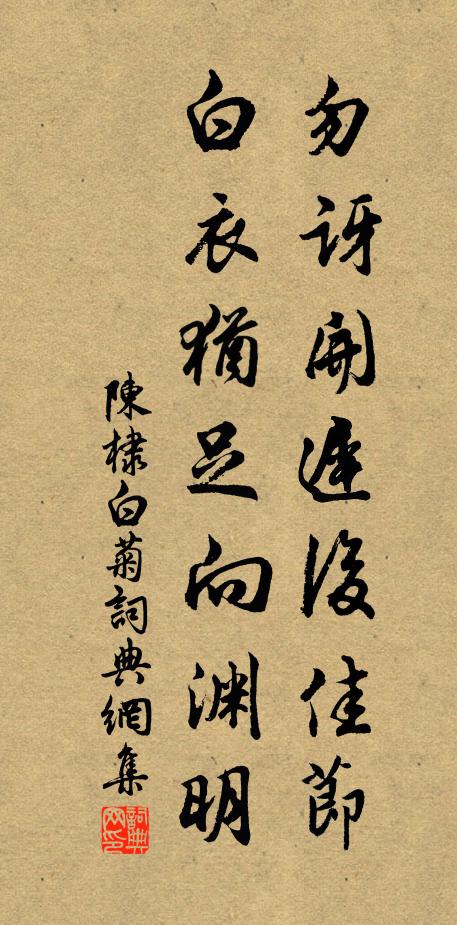 勿訝開遲後佳節
白衣猶足向渊明
陳棣白菊詞典網集
詞典
网印